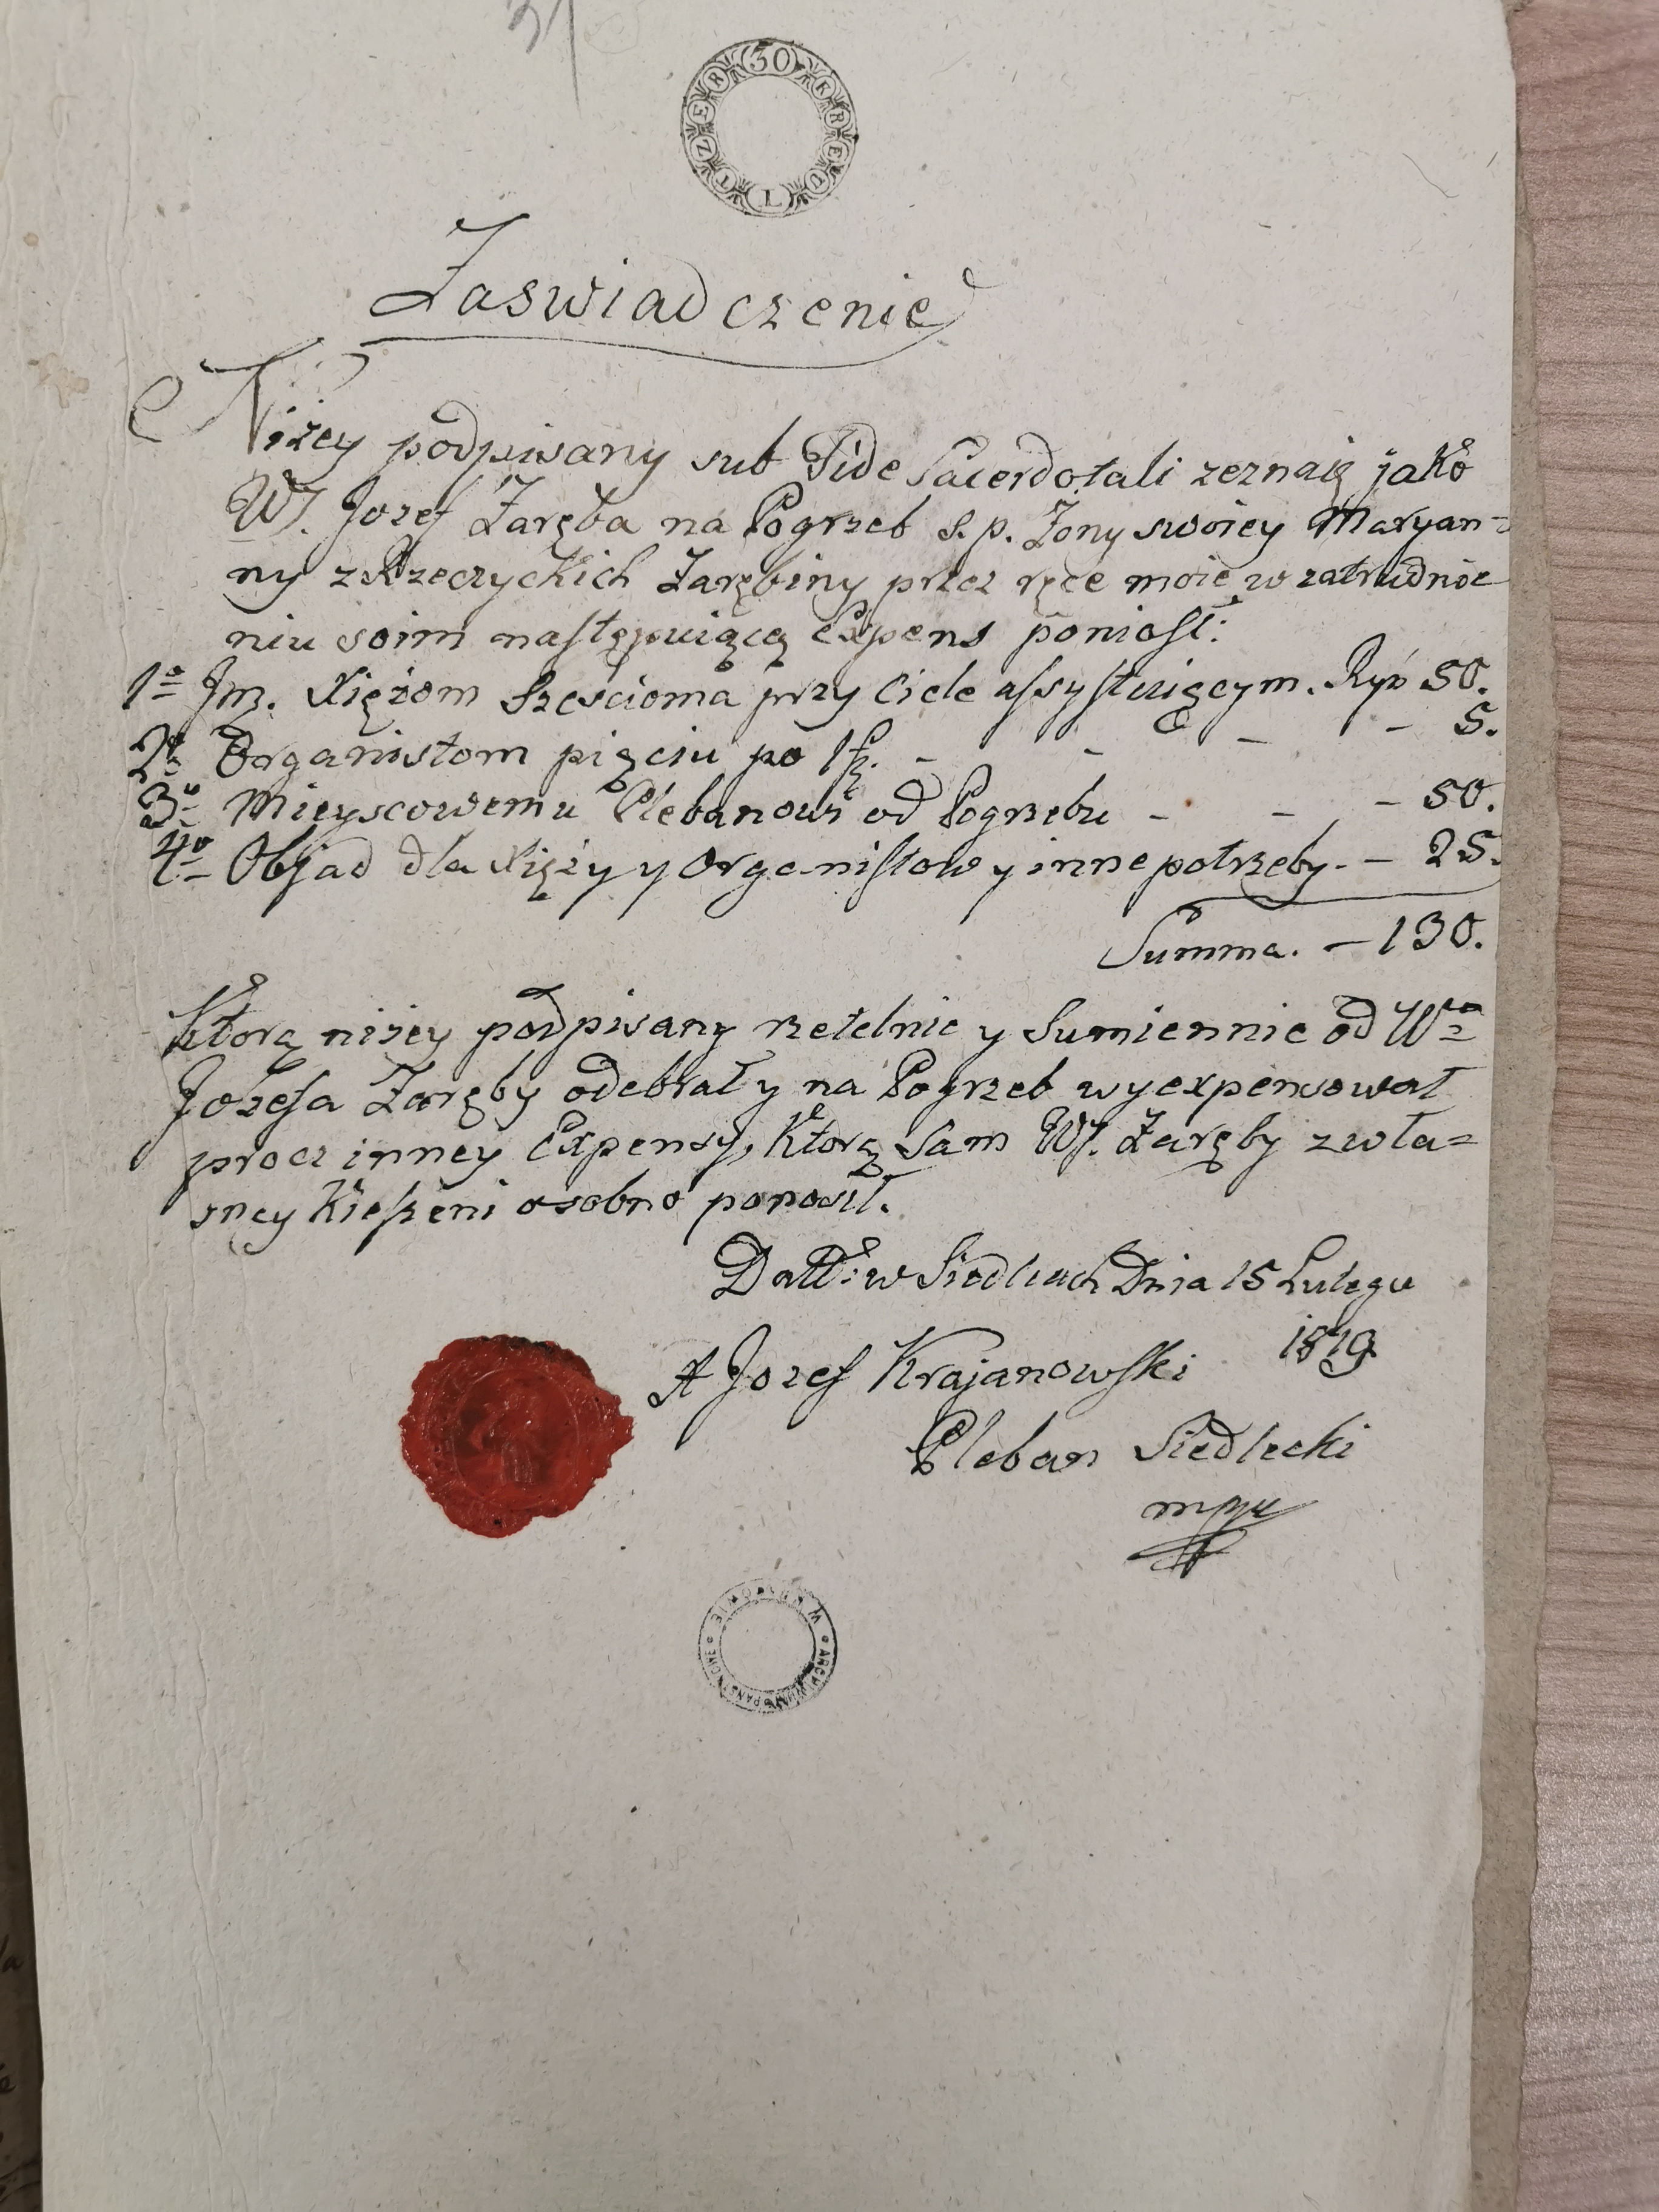 31
30 KREUTZER
Zaswiadczenie
Niżey podpisany sub Fide Sacerdotali zeznaię jako
WJ. Jozef Zaręba na Pogrzeb s. p. Żony swoiey Maryan=
ny z Rzeczyckich Zarębiny przez ręce moie w zatrudnie
niu soim następuiącą Expens poniosł:
1o Jm. Xiężom Szescioma przy Ciele assystuiącym. Ryń 50.
2o Organistom pięciu po 1 - - - - 5.
3o Mieyscowemu Plebanowi od Pogrzebu - - - 50.
4o Objad dla Xięży y Organistow y inne potrzeby. - 25.
Summa. - 130.
Ktorą niżey podpisany rzetelnie y Sumiennie od Wo
Jozefa Zaręby odebrał y na Pogrzeb wyexpensował
procz inney Expensy, Ktorą Sam WJ. Zaręby z wła=
sney Kieszeni osobno ponosił.
Datt: w Siedlcach Dnia 15 Lutego
1819
X Jozef Krajanowski
Pleban Siedlecki
mpu
ARCHIWUM PAŃSTWOWE W KRAKOWIE